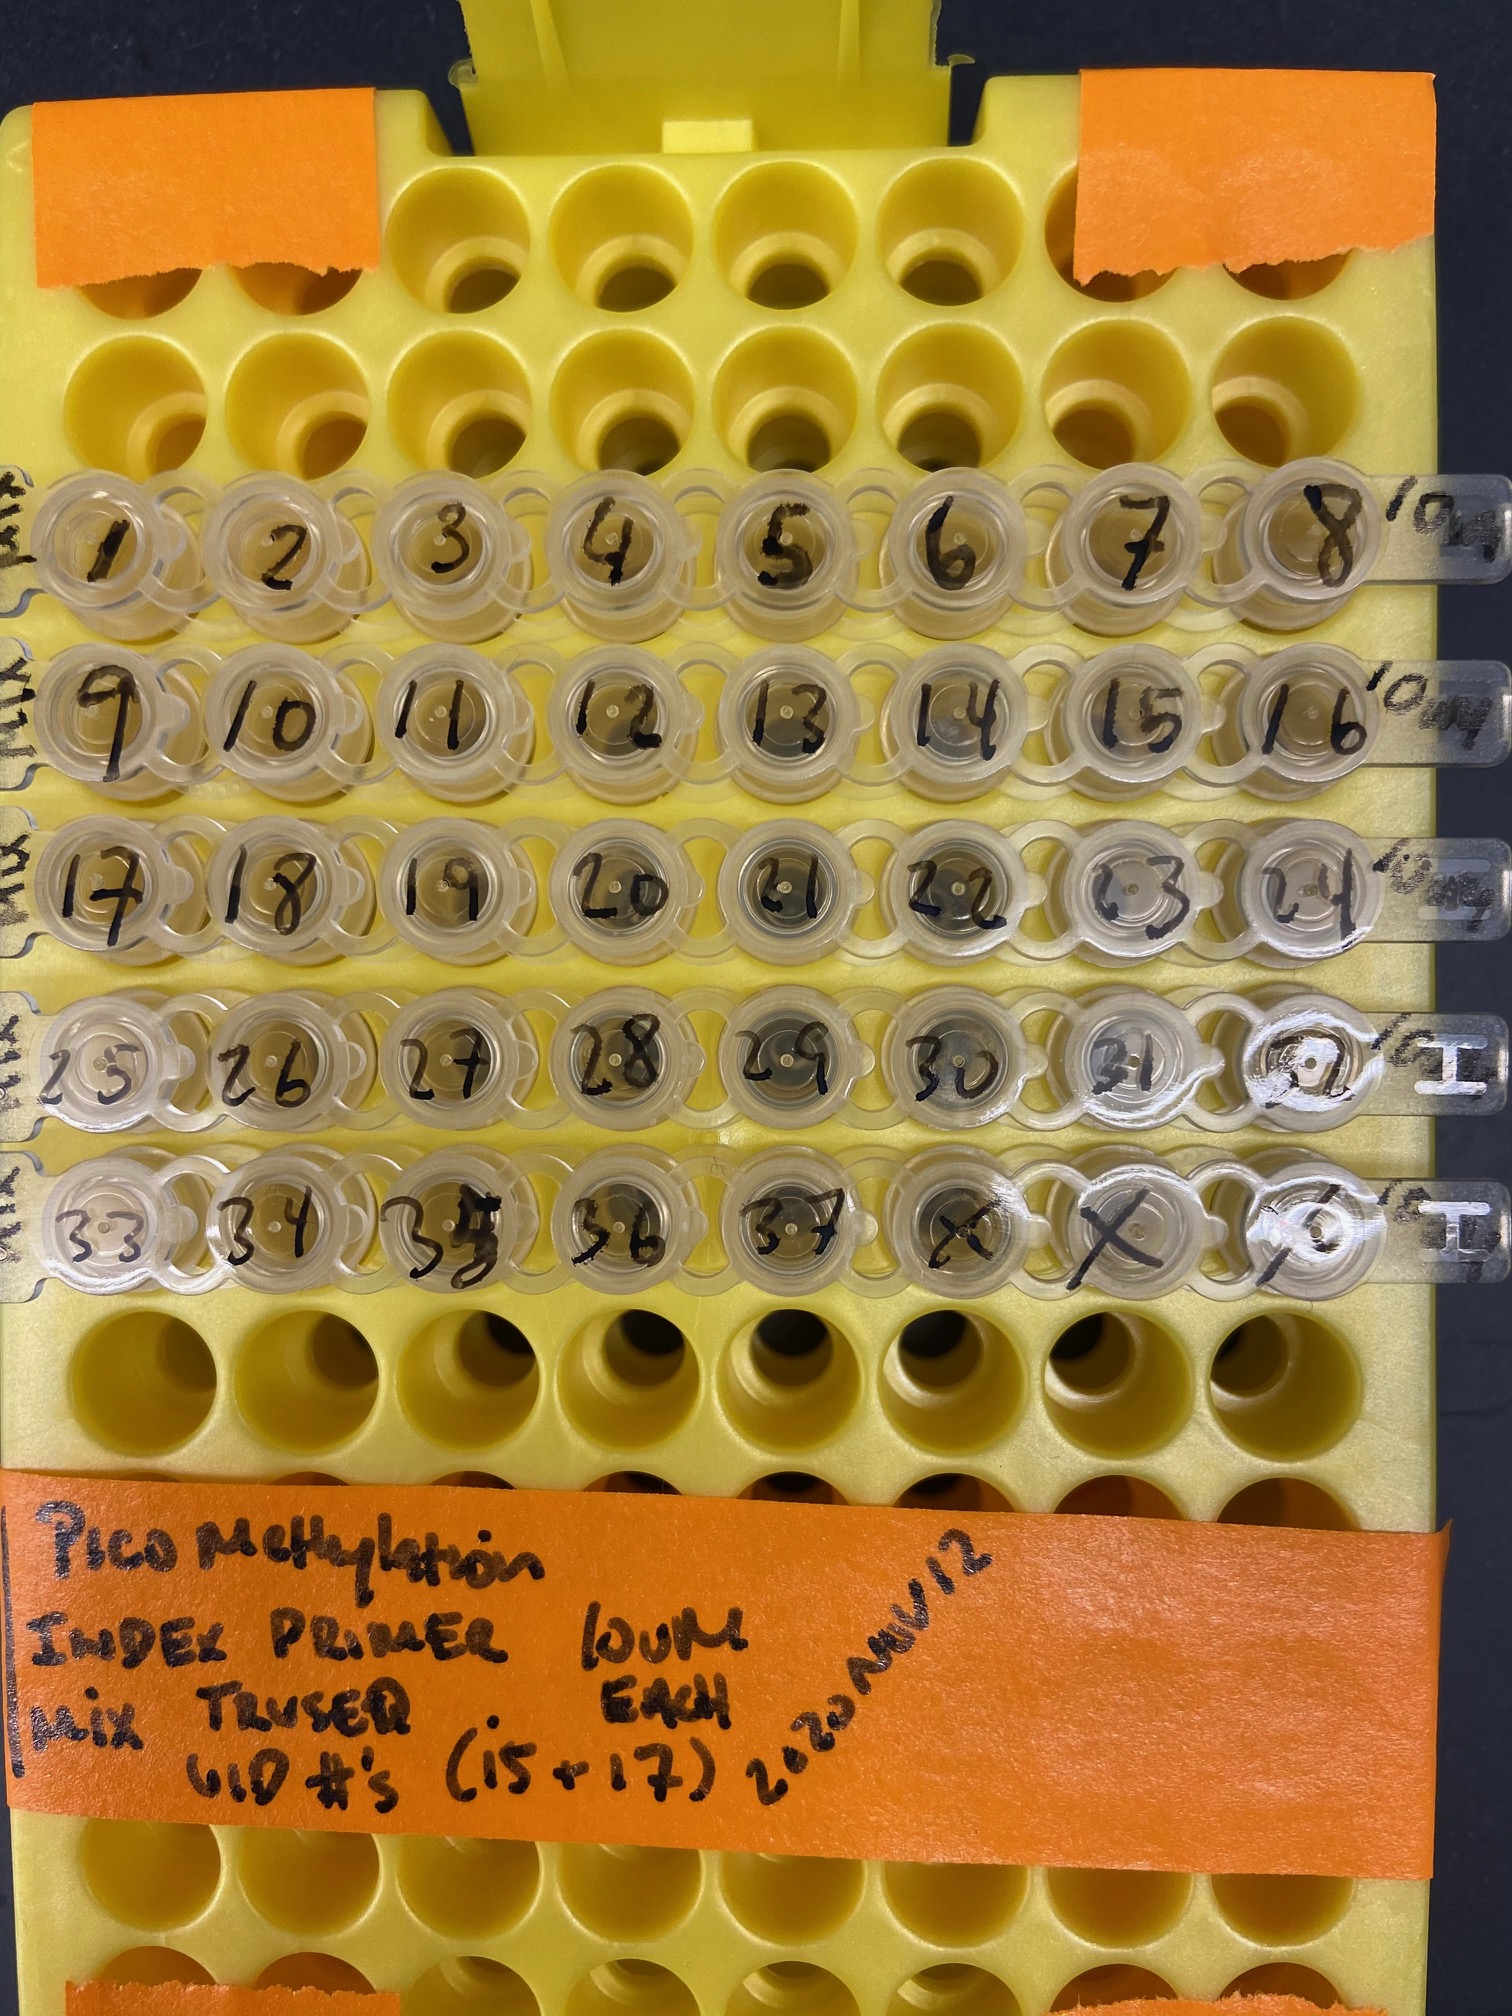 MIX 1 2 3 4 5 6 7 8 10uM
MIX 9 10 11 12 13 14 15 16 10uM
MIX 17 18 19 20 21 22 23 24 10uM
MIX 25 26 27 28 29 30 31 10
MIX 33 34 35 36 37 X X X 10
PICO Methylation
INDEX PRIMER 10uM
MIX TRUSEQ EACH
UID #'s (i5 + i7) 2020 NOV 12